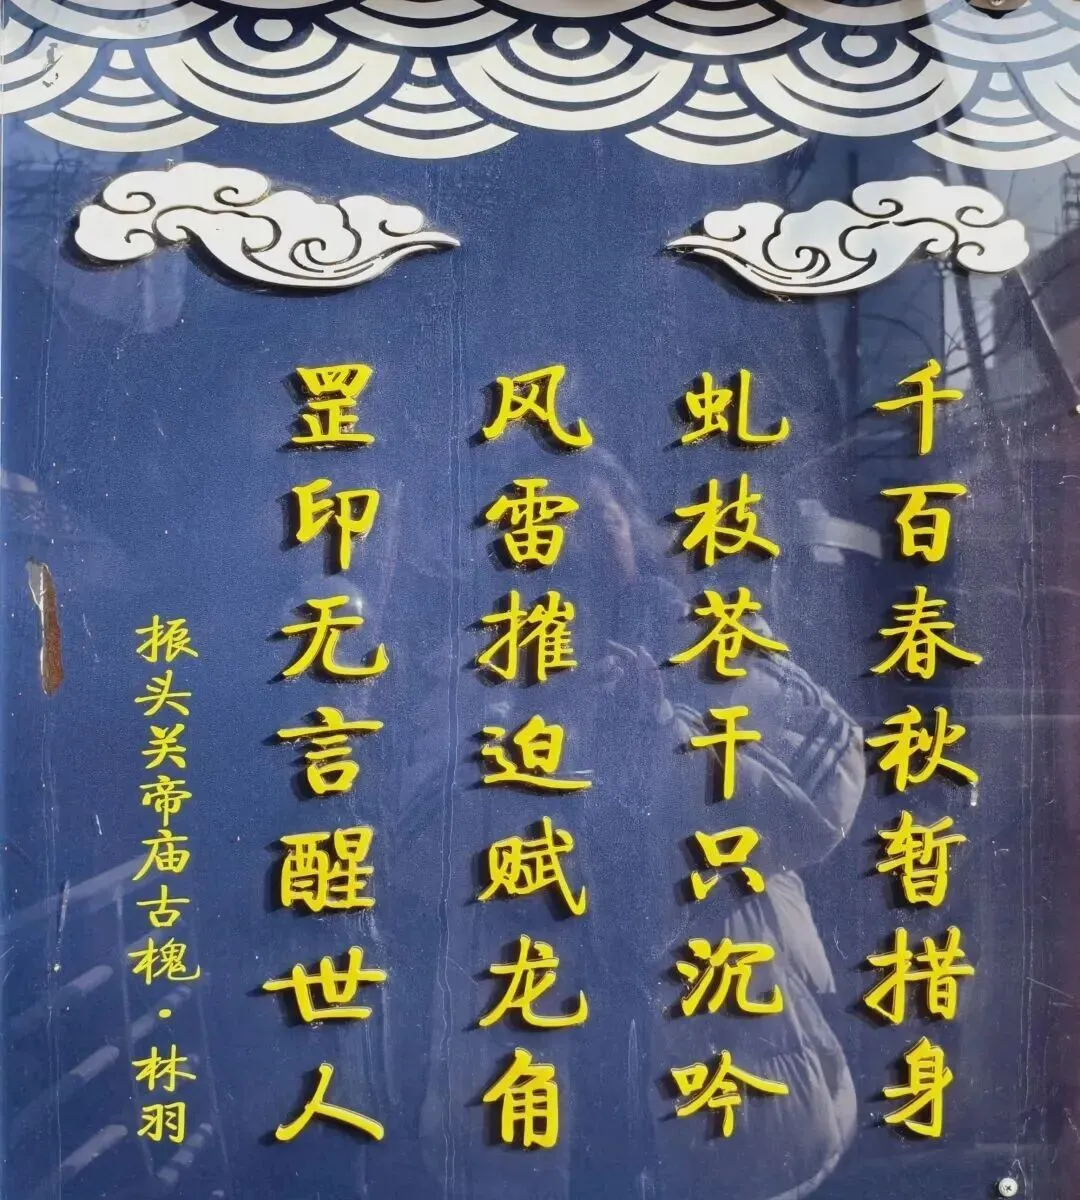 千百春秋暂措身
虬枝苍干只沉吟
风雷摧迫赋龙角
罡印无言醒世人
振头关帝庙古槐·林羽